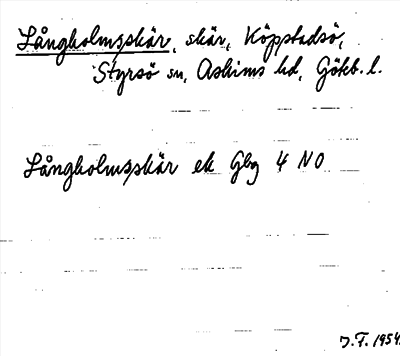 Långholmsskär, skär, Köpstadsö,
Styrsö sn, Askims hd, Göteb. l.
Långholmsskär ek Gbg 4 NO
J.F. 1954.